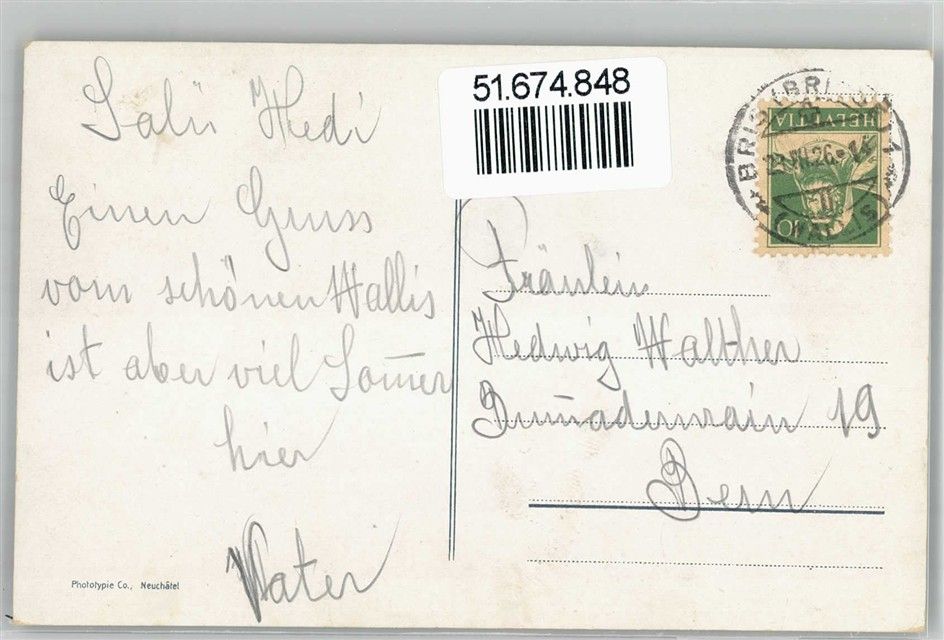 51.674.848
Salü Hedi
Einen Gruss
vom schönen Wallis
ist aber viel Som̄er
hier
Vater
Phototypie Co., Neuchâtel
HELVETIA
10
BRIG (BRIGUE)
(WALLIS)
Fräulein
Hedwig Walther
19
Bern